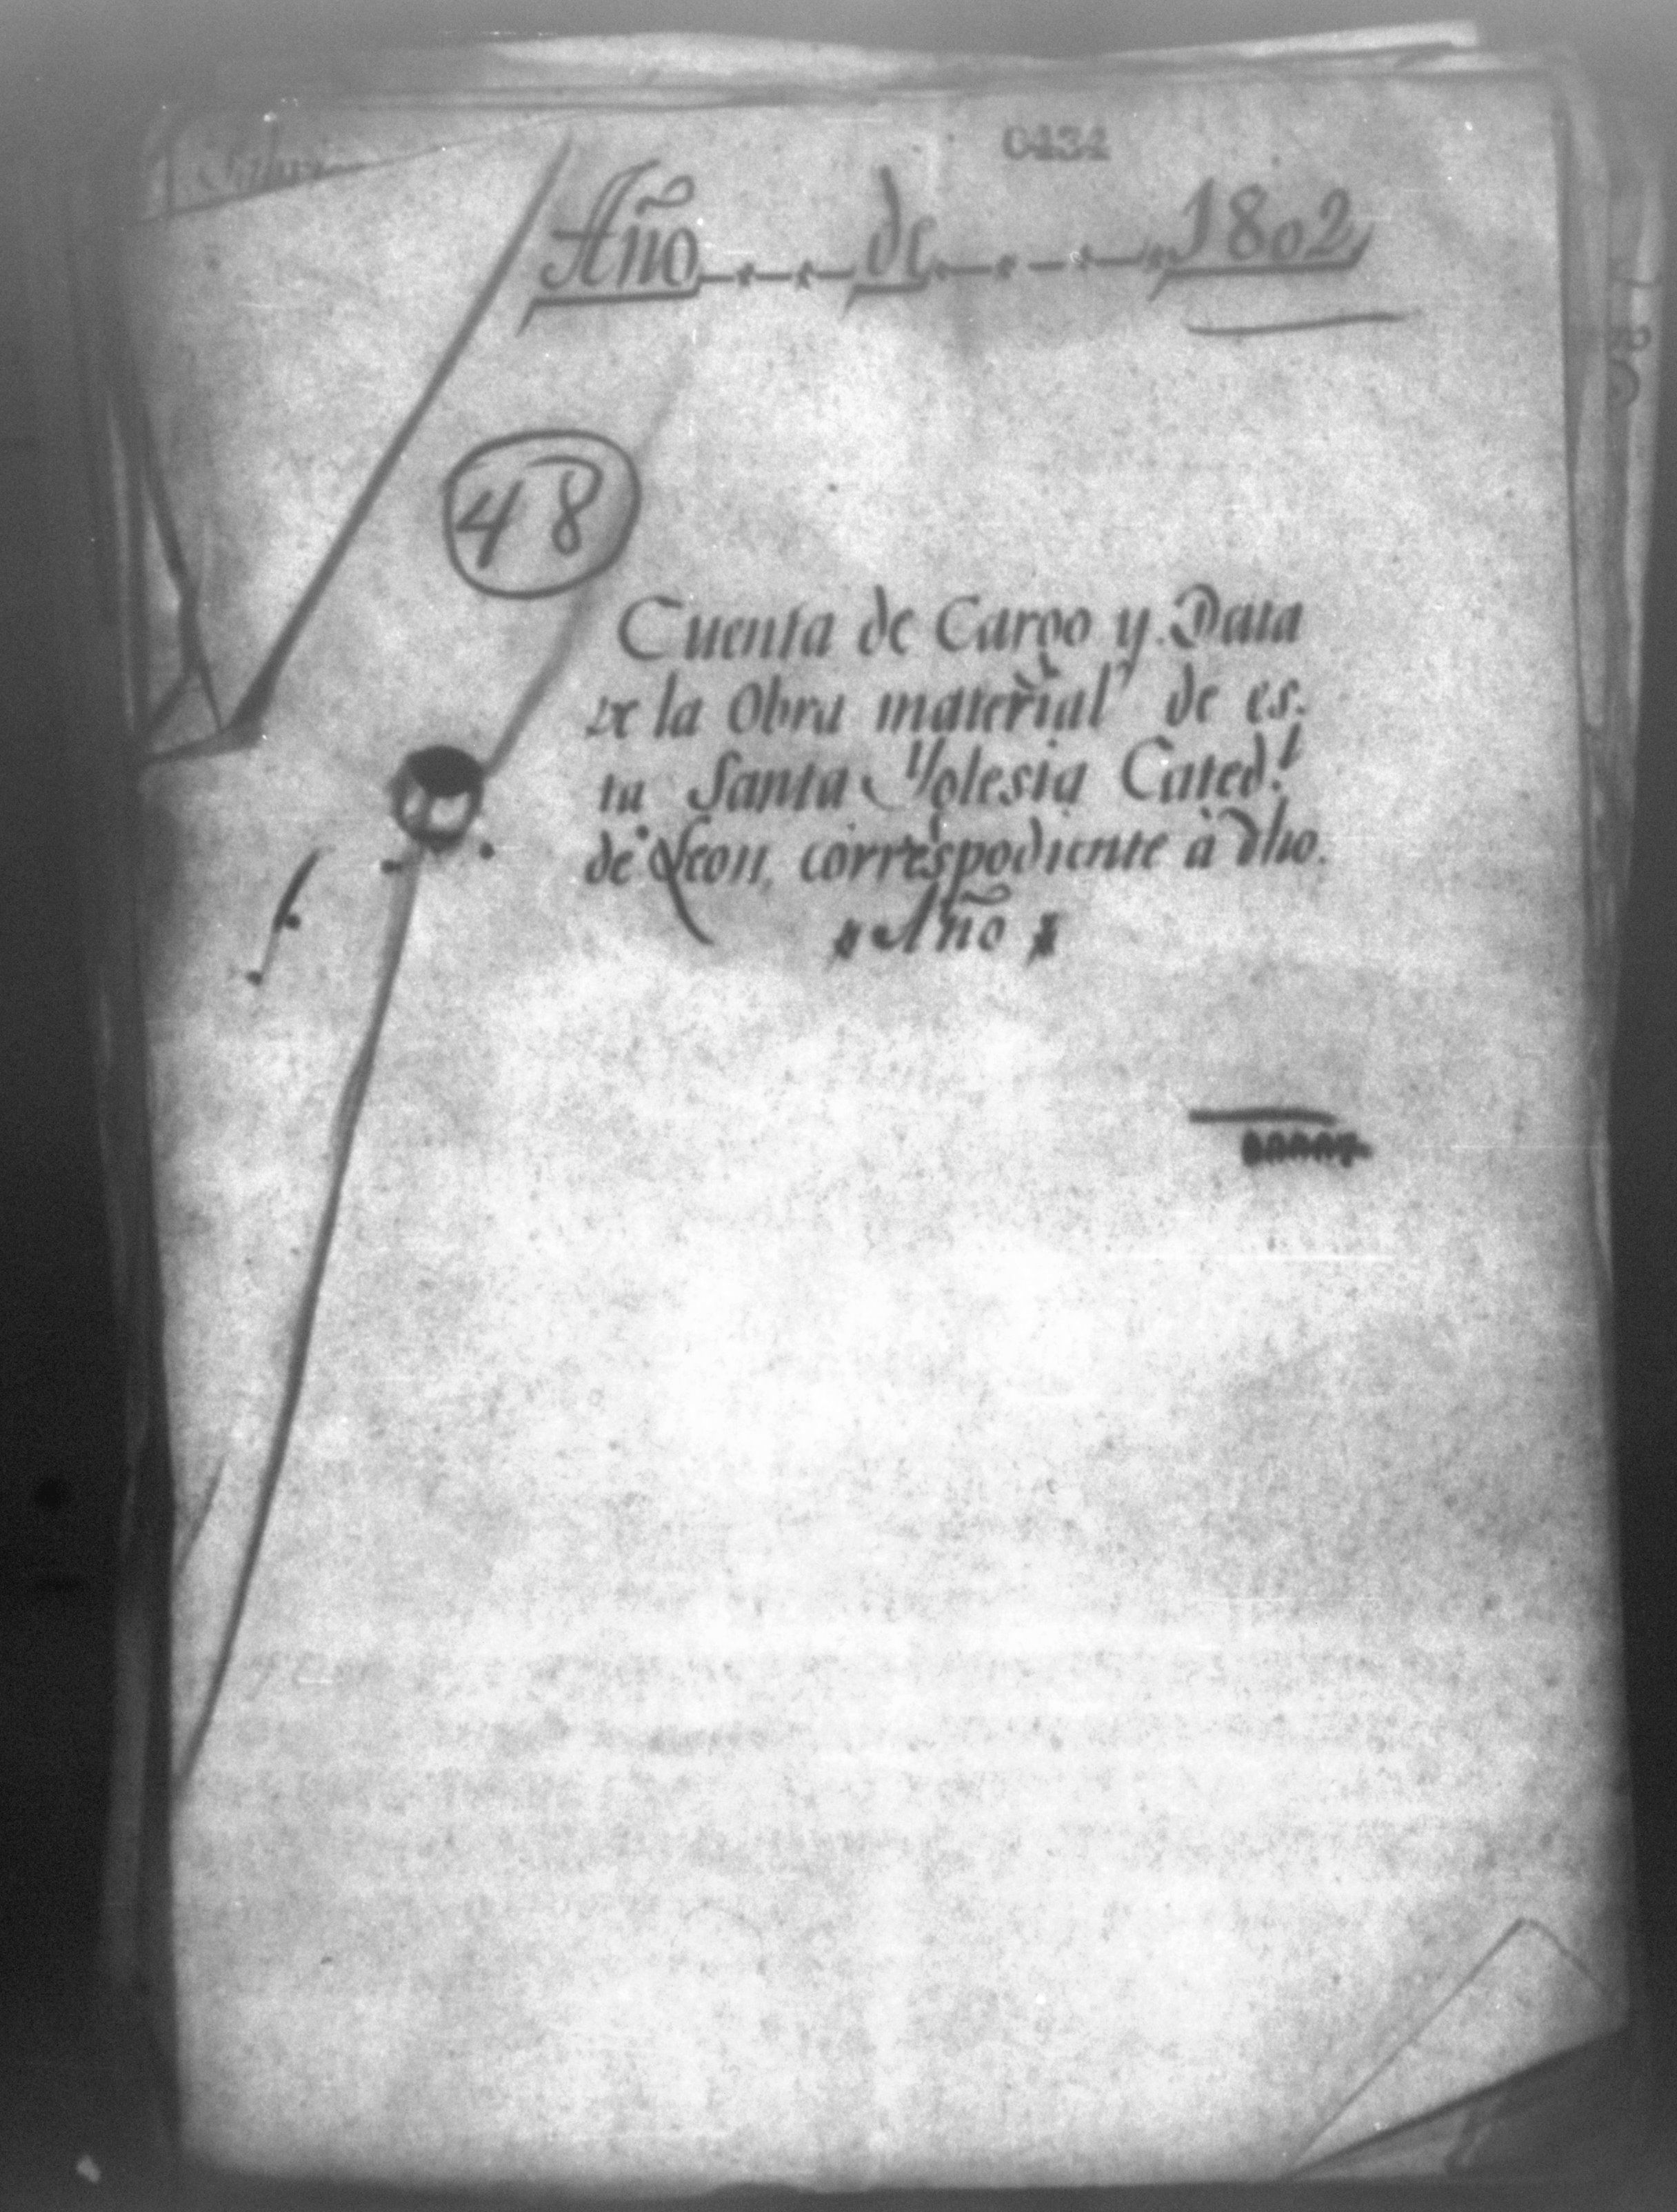 0434
Año de 1802
48
Cuenta de Cargo y Data
de la Obra material de es-
ta Santa Yglesia Cated.l
de Leon, correspodiente à dho.
Año